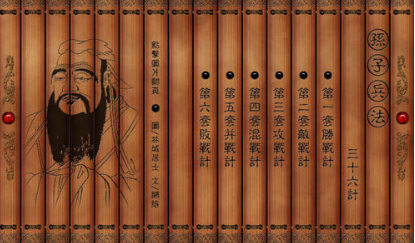 孫子兵法
三十六計
第一套勝戰計
第二套敵戰計
第三套攻戰計
第四套混戰計
第五套并戰計
第六套敗戰計
點擊圖片翻頁